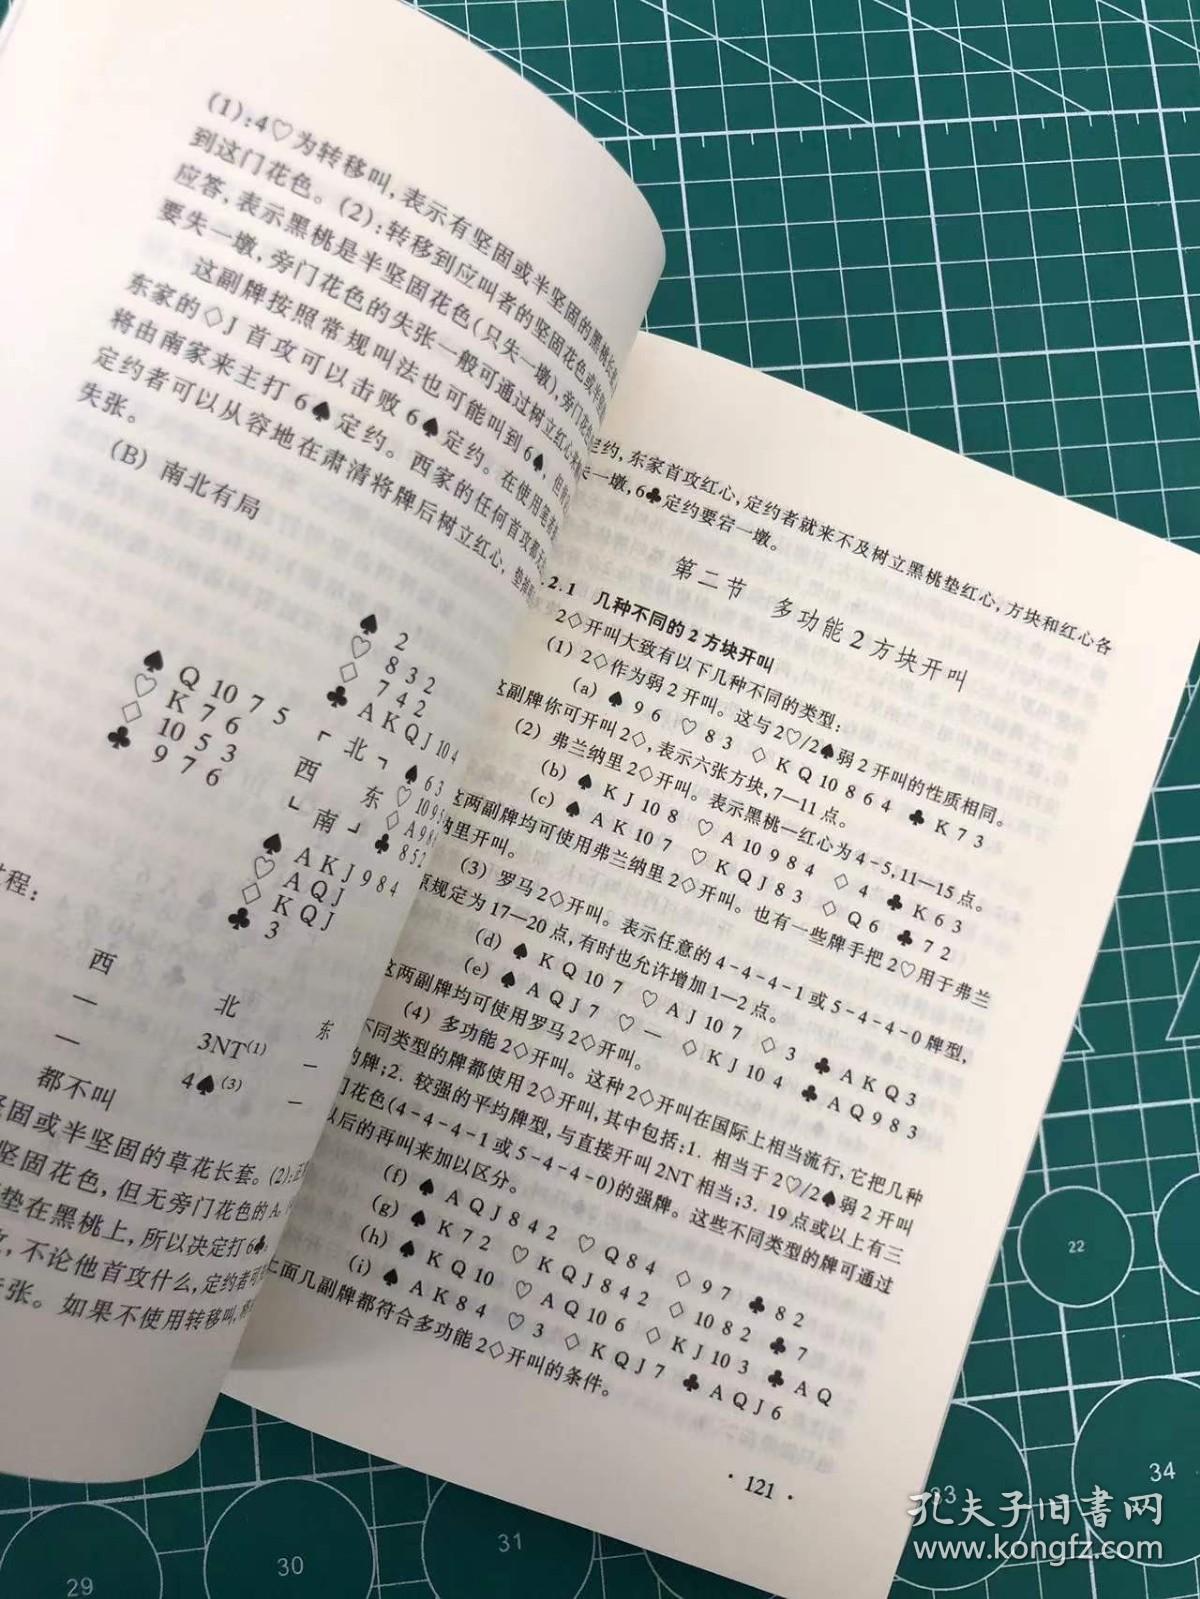 (1):4♡为转移叫,表示有坚固或半坚固的黑桃长套
到这门花色。(2):转移到应叫者的坚固花色或半坚固
应答,表示黑桃是半坚固花色(只失一墩),旁门花色
要失一墩,旁门花色的失张一般可通过树立红心来
这副牌按照常规叫法也可能叫到6♠,但
东家的◇J首攻可以击败6♠定约。在使用
将由南家来主打6♠定约。西家的任何首攻都
定约者可以从容地在肃清将牌后树立红心,垫
失张。
(B) 南北有局
♠ 2
♡ 8 3 2
◇ 7 4 2
♣ A K Q J 10 4
♠ Q 10 7 5
♡ K 7 6
◇ 10 5 3
♣ 9 7 6
北
西 东
南
♠ 6 3
♡ 10 9 5
◇ A 9 8
♣ 8 5 2
♠ A K J 9 8 4
♡ A Q J
◇ K Q J
♣ 3
过程:
西 北 东
— 3NT(1) —
— 4♠(3) —
都不叫
坚固或半坚固的草花长套。(2):
坚固花色,但无旁门花色的A、
垫在黑桃上,所以决定打6♣。
,不论他首攻什么,定约者可
失张。如果不使用转移叫,
定约,东家首攻红心,定约者就来不及树立黑桃垫红心,方块和红心各
失一墩,6♣定约要宕一墩。
第二节 多功能2方块开叫
.2.1 几种不同的2方块开叫
2◇开叫大致有以下几种不同的类型:
(1) 2◇作为弱2开叫。这与2♡/2♠弱2开叫的性质相同。
(a) ♠ 9 6 ♡ 8 3 ◇ K Q 10 8 6 4 ♣ K 7 3
这副牌你可开叫2◇,表示六张方块,7—11点。
(2) 弗兰纳里2◇开叫。表示黑桃—红心为4-5,11—15点。
(b) ♠ K J 10 8 ♡ A 10 9 8 4 ◇ 4 ♣ K 6 3
(c) ♠ A K 10 7 ♡ K Q J 8 3 ◇ Q 6 ♣ 7 2
这两副牌均可使用弗兰纳里2◇开叫。也有一些牌手把2♡用于弗兰
纳里开叫。
(3) 罗马2◇开叫。表示任意的4-4-4-1或5-4-4-0牌型,
原规定为17—20点,有时也允许增加1—2点。
(d) ♠ K Q 10 7 ♡ A J 10 7 ◇ 3 ♣ A K Q 3
(e) ♠ A Q J 7 ♡ — ◇ K J 10 4 ♣ A Q 9 8 3
这两副牌均可使用罗马2◇开叫。
(4) 多功能2◇开叫。这种2◇开叫在国际上相当流行,它把几种
不同类型的牌都使用2◇开叫,其中包括:1. 相当于2♡/2♠弱2开叫
的牌;2. 较强的平均牌型,与直接开叫2NT相当;3. 19点或以上有三
门花色(4-4-4-1或5-4-4-0)的强牌。这些不同类型的牌可通过
以后的再叫来加以区分。
(f) ♠ A Q J 8 4 2 ♡ Q 8 4 ◇ 9 7 ♣ 8 2
(g) ♠ K 7 2 ♡ K Q J 8 4 2 ◇ 10 8 2 ♣ 7
(h) ♠ K Q 10 ♡ A Q 10 6 ◇ K J 10 3 ♣ A Q
(i) ♠ A K 8 4 ♡ 3 ◇ K Q J 7 ♣ A Q J 6
上面几副牌都符合多功能2◇开叫的条件。
· 121 ·
22
29
30
31
33
34
孔夫子旧书网
www.kongfz.com